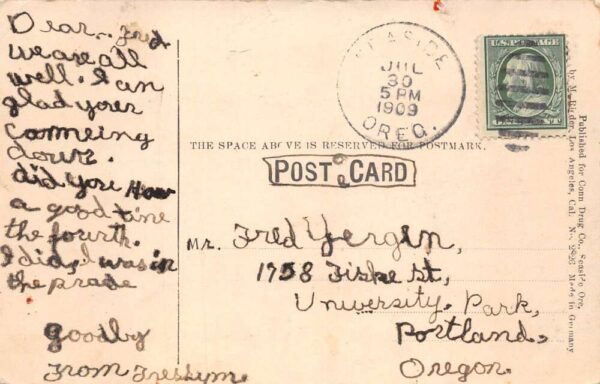 Dear.. Fred.
we are all
well. I am
glad your
comeing
down.
did you How
a good time
the fourth.
I did, I was in
the prade
goodby
From
SEASIDE
JUL
30
5 PM
1909
OREG.
U.S. POSTAGE
THE SPACE ABOVE IS RESERVED FOR POSTMARK.
POST CARD
Mr. Fred Yergen,
1758 Fiske St,
University Park,
Portland,
Oregon.
Published for Conn Drug Co., Seaside Ore.
by M. Rieder, Los Angeles, Cal. No. Made in Germany